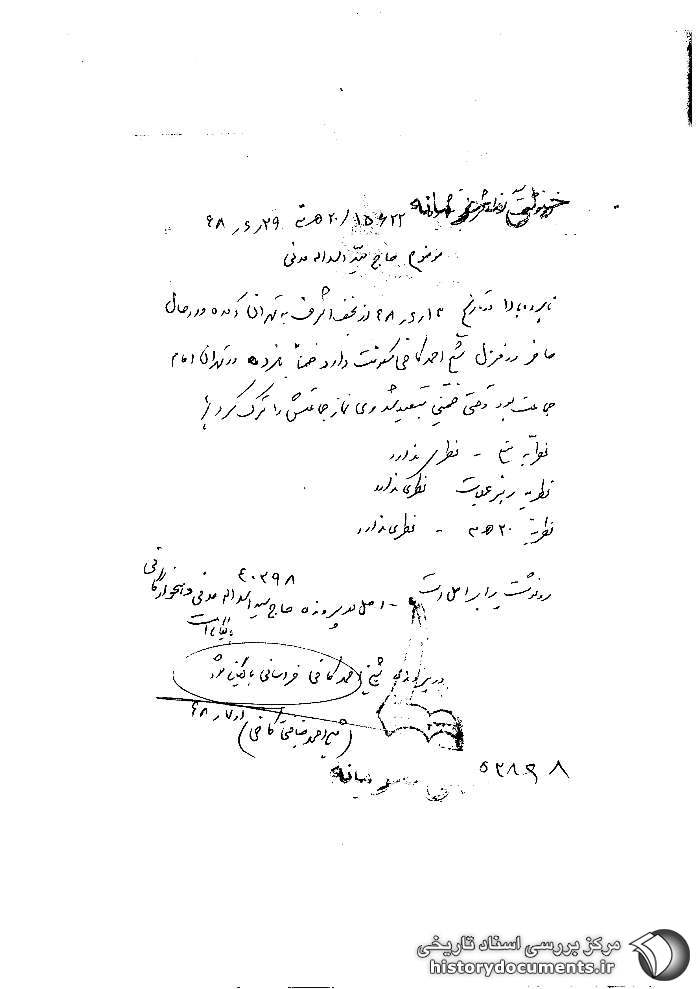 خیلی محرمانه
۲۰/۱۵۶۲۲ هـ ۲ ۲۹ر۶ر۴۸
موضوع حاج سید اسداله مدنی
نامبرده بالا در تاریخ ۱۲ر۶ر۴۸ از نجف اشرف به تهران آمده و در حال
حاضر در منزل شیخ احمد کافی سکونت دارد ضمناً نامبرده در تهران امام
جماعت بود وقتی خمینی تبعید شد وی نماز جماعتش را ترک کرد
نظریه شنبه - نظری ندارد
نظریه رهبر عملیات نظری ندارد
نظریه ۲۰ هـ ۳ - نظری ندارد
رونوشت برابر اصل است - اصل در پرونده حاج سید اسداله مدنی
۴۰۳۹۸
بایگانی است
در پرونده شیخ احمد کافی خراسانی بایگانی شود
(شیخ احمد ضیافتی کافی)
محرمانه
۵۳۸۶۸
مرکز بررسی اسناد تاریخی
historydocuments.ir